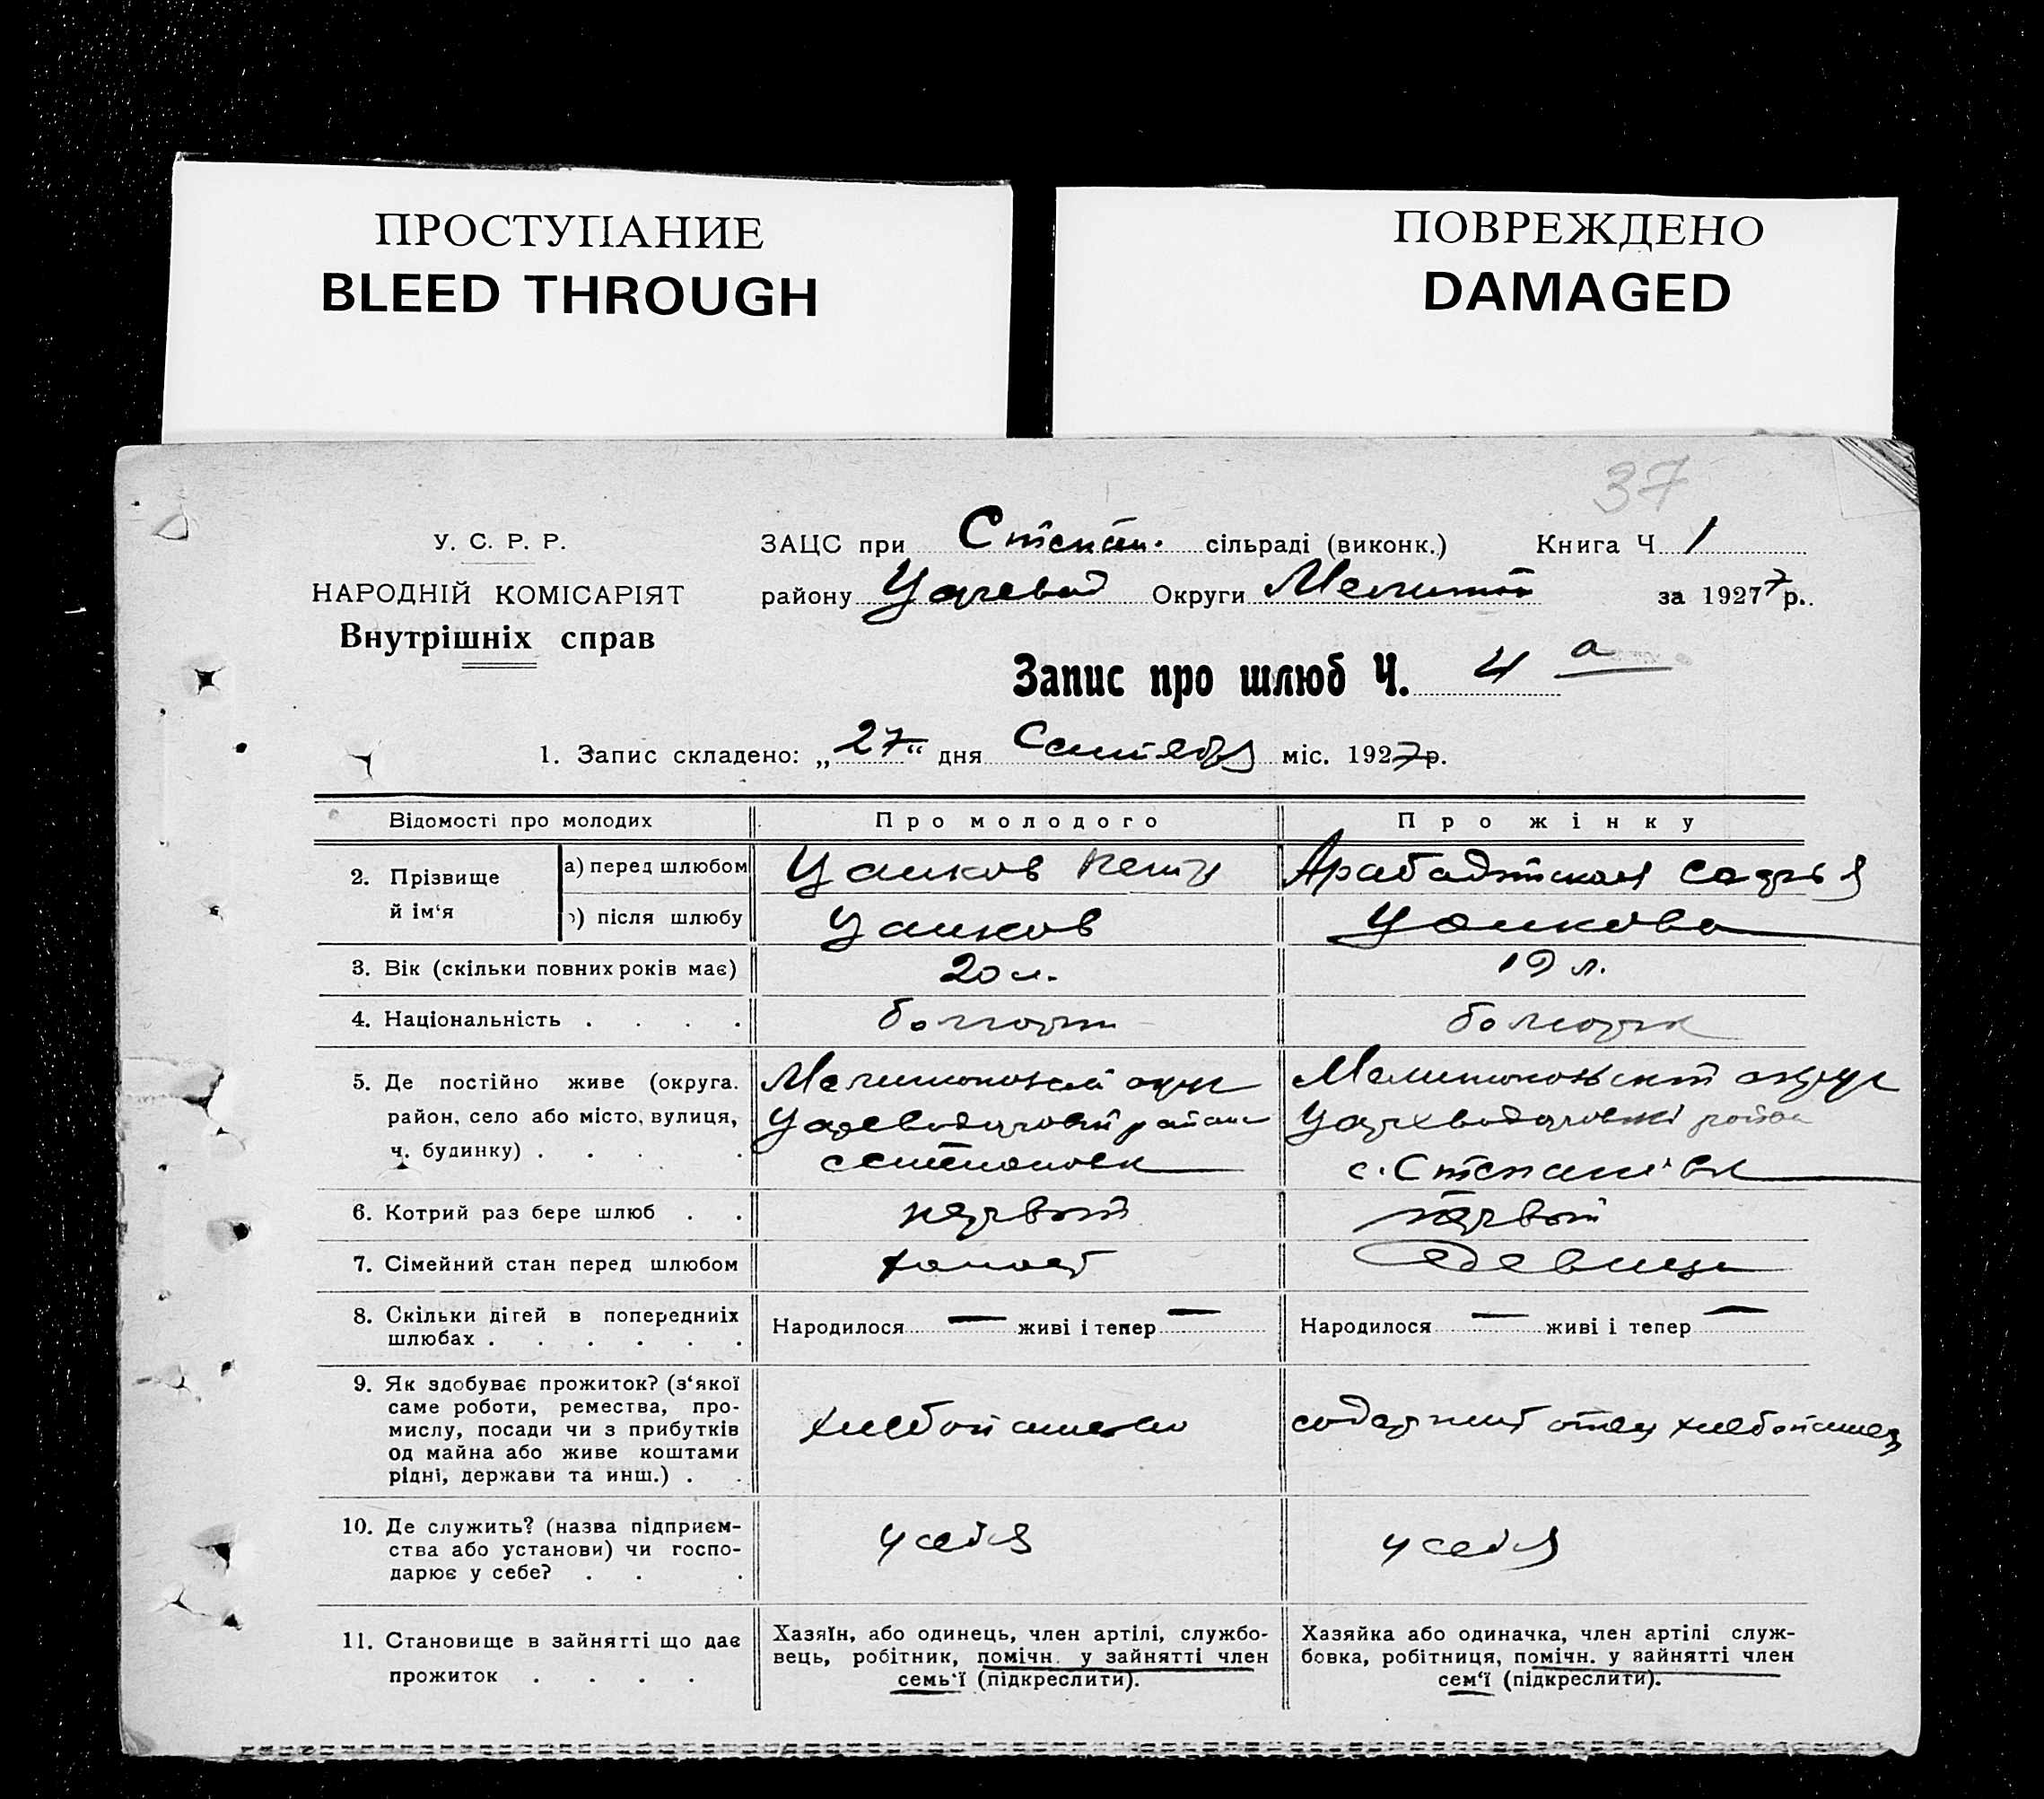 ПРОСТУПАНИЕ
BLEED THROUGH
ПОВРЕЖДЕНО
DAMAGED
37
У. С. Р. Р.
НАРОДНІЙ КОМІСАРІЯТ
Внутрішніх справ
ЗАЦС при Степан. сільраді (виконк.) Книга Ч. 1
району Царевод Округи Мелитоп за 1927 7 р.
Запис про шлюб Ч. 4 а
1. Запис складено: „27“ дня Сентября міс. 1927 р.
Відомості про молодих
Про молодого
Про жінку
2. Прізвище й ім‘я
а) перед шлюбом
Цанков Петр
Арабаджская
) після шлюбу
Цанков
Цанкова
3. Вік (скільки повних років має)
20 л.
19 л.
4. Національність . . . .
болгарин
болгарк
5. Де постійно живе (округа.
район, село або місто, вулиця,
ч. будинку) . . . .
Мелитопольский округ
Цареводаровский район
с Степановк
Мелитопольский округ
Цареводаровский район
с. Степанівк
6. Котрий раз бере шлюб . .
первый
первый
7. Сімейний стан перед шлюбом
холост
девица
8. Скільки дітей в попередниіх
шлюбах . . . . . .
Народилося — живі і тепер —
Народилося — живі і тепер —
9. Як здобуває прожиток? (з‘якої
саме роботи, ремества, про-
мислу, посади чи з прибутків
од майна або живе коштами
рідні, держави та инш.) . .
хлебопашество
содержит отец хлебопашец
10. Де служить? (назва підприєм-
ства або установи) чи госпо-
дарює у себе? . . .
у себя
у себя
11. Становище в зайнятті що дає
прожиток . . . .
Хазяїн, або одинець, член артілі, службо-
вець, робітник, помічн. у зайнятті член
семь‘ї (підкреслити).
Хазяйка або одиначка, член артілі служ-
бовка, робітниця, помічн. у зайнятті член
сем‘ї (підкреслити).